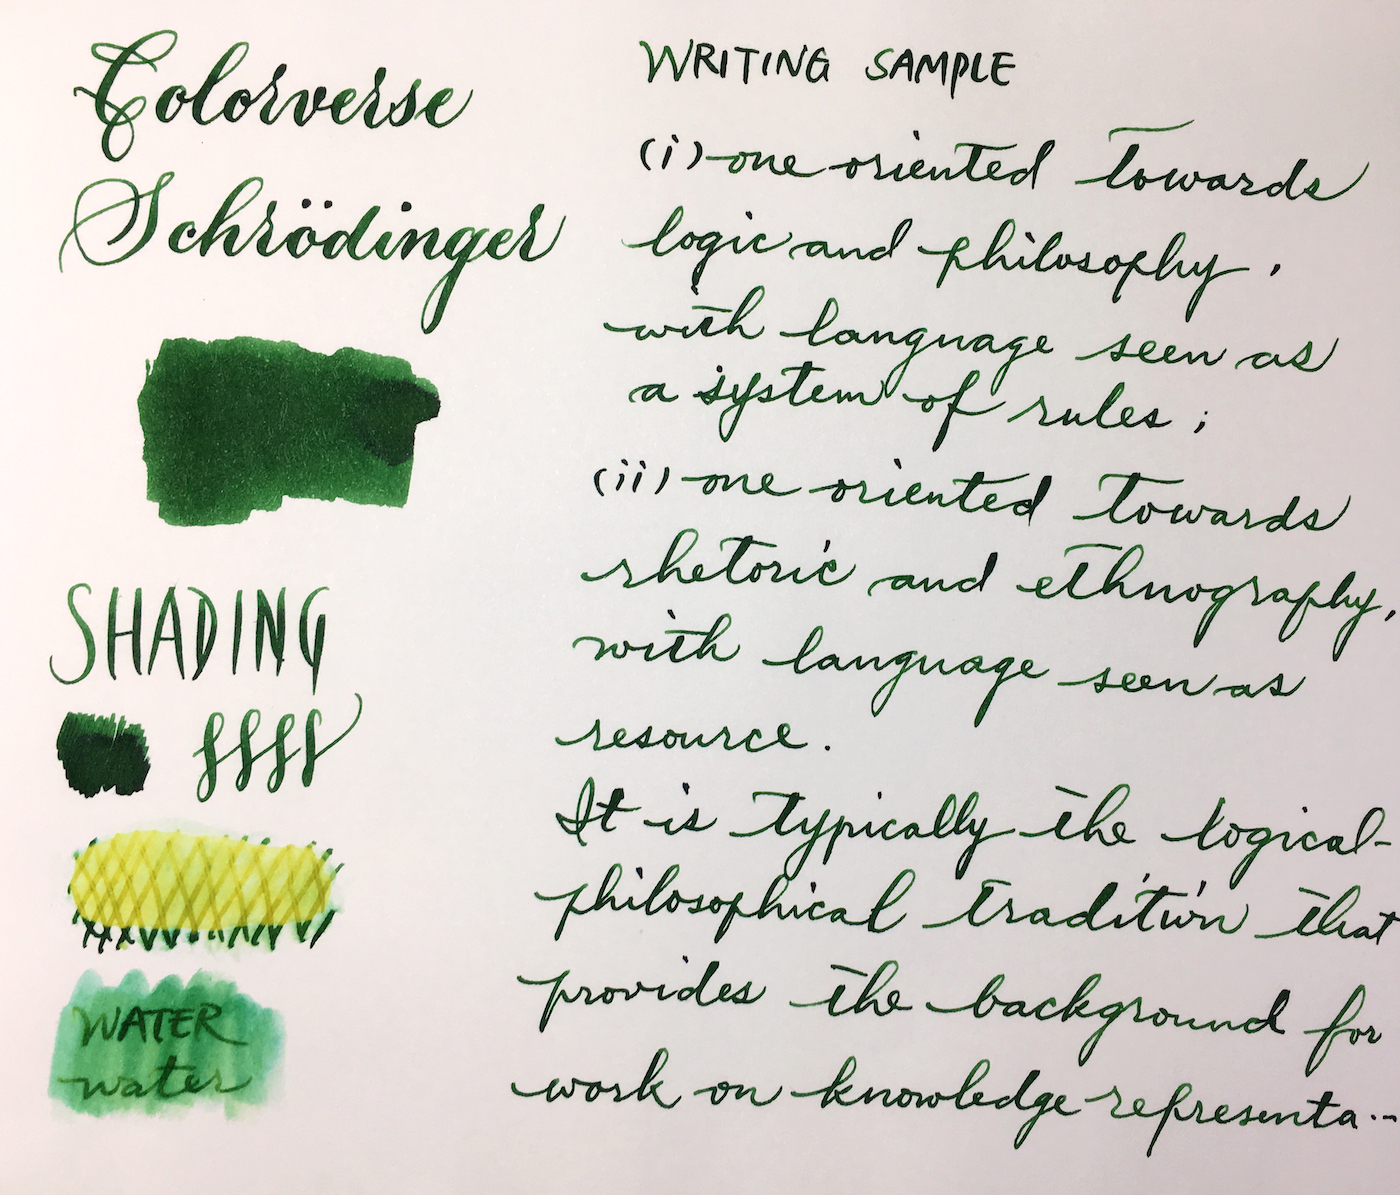 Colorverse
Schrödinger
SHADING
WATER
water
WRITING SAMPLE
(i) one oriented towards
logic and philosophy,
with language seen as
a system of rules;
(ii) one oriented towards
rhetoric and ethnography,
with language seen as
resource.
It is typically the logical-
philosophical tradition that
provides the background for
work on knowledge representa...